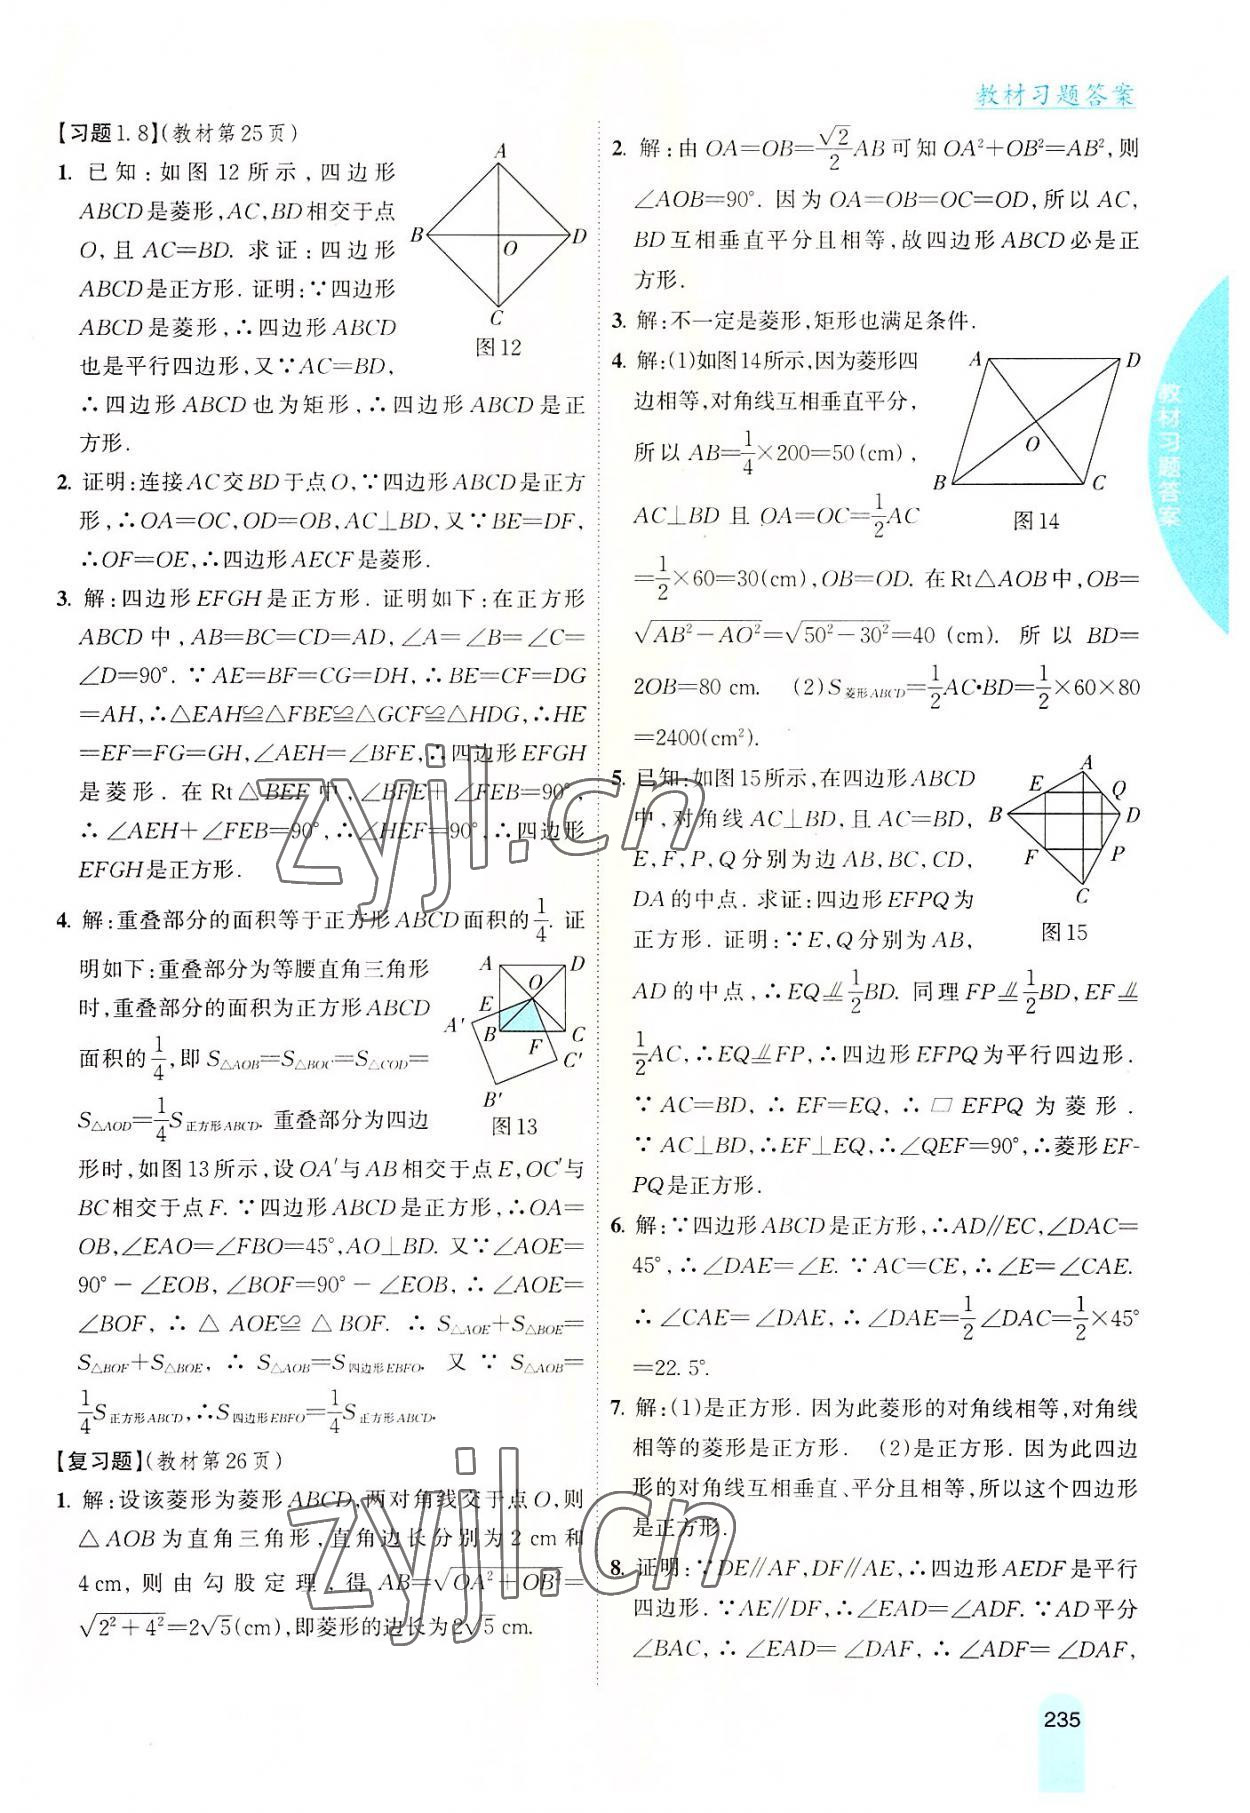 教材习题答案
【习题1.8】(教材第25页)
1. 已知:如图12所示,四边形
ABCD是菱形,AC,BD相交于点
O,且AC=BD. 求证:四边形
ABCD是正方形. 证明:∵四边形
ABCD是菱形,∴四边形ABCD
也是平行四边形,又∵AC=BD,
∴四边形ABCD也为矩形,∴四边形ABCD是正
方形.
A
B
D
O
C
图12
2. 证明:连接AC交BD于点O,∵四边形ABCD是正方
形,∴OA=OC,OD=OB,AC⊥BD,又∵BE=DF,
∴OF=OE,∴四边形AECF是菱形.
3. 解:四边形EFGH是正方形. 证明如下:在正方形
ABCD中,AB=BC=CD=AD,∠A=∠B=∠C=
∠D=90°. ∵AE=BF=CG=DH,∴BE=CF=DG
=AH,∴△EAH≌△FBE≌△GCF≌△HDG,∴HE
=EF=FG=GH,∠AEH=∠BFE,∴四边形EFGH
是菱形. 在Rt△BEF中,∠BFE+∠FEB=90°,
∴∠AEH+∠FEB=90°,∴∠HEF=90°,∴四边形
EFGH是正方形.
4. 解:重叠部分的面积等于正方形ABCD面积的1/4. 证
明如下:重叠部分为等腰直角三角形
时,重叠部分的面积为正方形ABCD
面积的1/4,即S△AOB=S△BOC=S△COD=
S△AOD=1/4S正方形ABCD. 重叠部分为四边
形时,如图13所示,设OA′与AB相交于点E,OC′与
BC相交于点F. ∵四边形ABCD是正方形,∴OA=
OB,∠EAO=∠FBO=45°,AO⊥BD. 又∵∠AOE=
90°-∠EOB,∠BOF=90°-∠EOB,∴∠AOE=
∠BOF,∴△AOE≌△BOF. ∴S△AOE+S△BOE=
S△BOF+S△BOE,∴S△AOB=S四边形EBFO. 又∵S△AOB=
1/4S正方形ABCD,∴S四边形EBFO=1/4S正方形ABCD.
A
D
O
E
A′
B
C
F
C′
B′
图13
【复习题】(教材第26页)
1. 解:设该菱形为菱形ABCD,两对角线交于点O,则
△AOB为直角三角形,直角边长分别为2 cm和
4 cm,则由勾股定理,得AB=√(OA²+OB²)=
√(2²+4²)=2√5(cm),即菱形的边长为2√5 cm.
2. 解:由OA=OB=√2/2AB可知OA²+OB²=AB²,则
∠AOB=90°. 因为OA=OB=OC=OD,所以AC,
BD互相垂直平分且相等,故四边形ABCD必是正
方形.
3. 解:不一定是菱形,矩形也满足条件.
4. 解:(1)如图14所示,因为菱形四
边相等,对角线互相垂直平分,
所以AB=1/4×200=50(cm),
AC⊥BD且OA=OC=1/2AC
=1/2×60=30(cm),OB=OD. 在Rt△AOB中,OB=
√(AB²-AO²)=√(50²-30²)=40 (cm). 所以BD=
2OB=80 cm. (2)S菱形ABCD=1/2AC·BD=1/2×60×80
=2400(cm²).
A
D
O
B
C
图14
5. 已知:如图15所示,在四边形ABCD
中,对角线AC⊥BD,且AC=BD,
E,F,P,Q分别为边AB,BC,CD,
DA的中点. 求证:四边形EFPQ为
正方形. 证明:∵E,Q分别为AB,
AD的中点,∴EQ⫽1/2BD. 同理FP⫽1/2BD,EF⫽
1/2AC,∴EQ⫽FP,∴四边形EFPQ为平行四边形.
∵AC=BD,∴EF=EQ,∴□EFPQ为菱形.
∵AC⊥BD,∴EF⊥EQ,∴∠QEF=90°,∴菱形EF-
PQ是正方形.
A
E
Q
B
D
F
P
C
图15
6. 解:∵四边形ABCD是正方形,∴AD∥EC,∠DAC=
45°,∴∠DAE=∠E. ∵AC=CE,∴∠E=∠CAE.
∴∠CAE=∠DAE,∴∠DAE=1/2∠DAC=1/2×45°
=22.5°.
7. 解:(1)是正方形. 因为此菱形的对角线相等,对角线
相等的菱形是正方形. (2)是正方形. 因为此四边
形的对角线互相垂直、平分且相等,所以这个四边形
是正方形.
8. 证明:∵DE∥AF,DF∥AE,∴四边形AEDF是平行
四边形. ∵AE∥DF,∴∠EAD=∠ADF. ∵AD平分
∠BAC,∴∠EAD=∠DAF,∴∠ADF=∠DAF,
教材习题答案
zyjl.cn
zyjl.cn
235